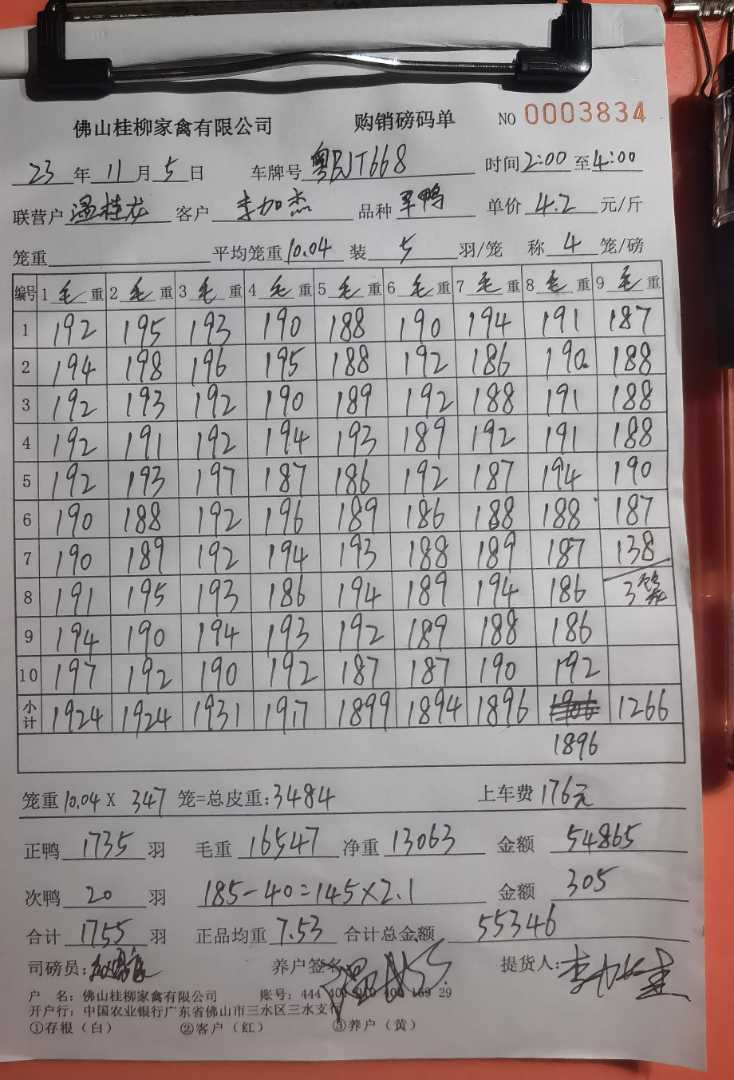 佛山桂柳家禽有限公司 购销磅码单 NO 0003834
23 年 11 月 5 日 车牌号 粤BJT668 时间 2:00 至 4:00
联营户 温桂龙 客户 李加杰 品种 羊鸭 单价 4.2 元/斤
笼重 平均笼重 10.04 装 5 羽/笼 称 4 笼/磅
编号 1 毛 重 2 毛 重 3 毛 重 4 毛 重 5 毛 重 6 毛 重 7 毛 重 8 毛 重 9 毛 重
1 192 195 193 190 188 190 194 191 187
2 194 198 196 195 188 192 186 190 188
3 192 193 192 190 189 192 188 191 188
4 192 191 192 194 193 189 192 191 188
5 192 193 197 187 186 192 187 194 190
6 190 188 192 196 189 186 188 188 187
7 190 189 192 194 193 188 189 187 138
8 191 195 193 186 194 189 194 186 3笼
9 194 190 194 193 192 189 188 186
10 197 192 190 192 187 187 190 192
小计 1924 1924 1931 1917 1899 1894 1896 1266
1896
笼重 10.04 X 347 笼=总皮重: 3484 上车费 176元
正鸭 1735 羽 毛重 16547 净重 13063 金额 54865
次鸭 20 羽 185-40=145×2.1 金额 305
合计 1755 羽 正品均重 7.53 合计总金额 55346
司磅员: 养户签名 提货人:
户 名: 佛山桂柳家禽有限公司 账号: 444 29
开户行: 中国农业银行广东省佛山市三水区三水支行
①存根（白） ②客户（红） ③养户（黄）